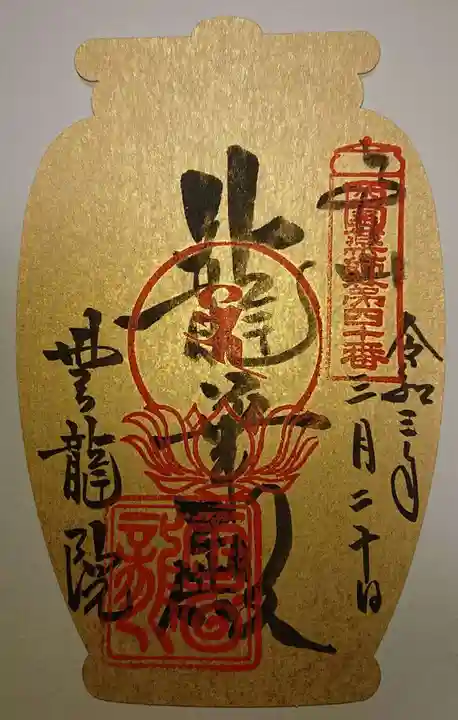 奉拝
西國薬師第四十番
令和三年
三月二十日
龍華殿
雲龍院